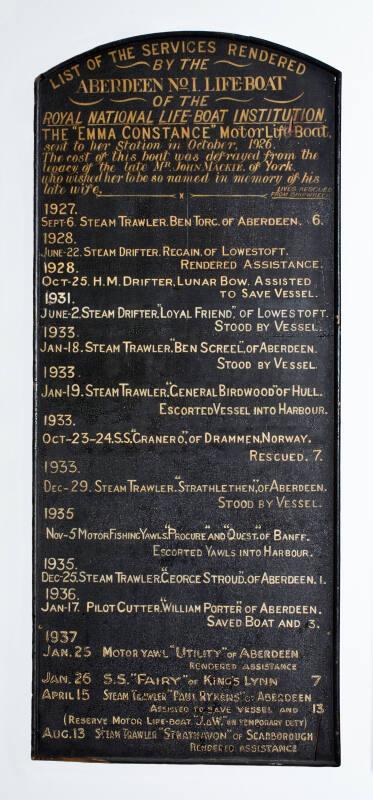 LIST OF THE SERVICES RENDERED
BY THE
ABERDEEN No I. LIFE-BOAT
OF THE
ROYAL NATIONAL LIFE-BOAT INSTITUTION.
THE "EMMA CONSTANCE" Motor Life-Boat,
sent to her Station in October, 1926.
The cost of this boat was defrayed from the
legacy of the late Mr. JOHN MACKIE, of York,
who wished her to be so named in memory of his
late wife.
LIVES RESCUED
FROM SHIPWRECK
1927.
SEPT-6. STEAM TRAWLER. BEN TORC. OF ABERDEEN. 6.
1928.
JUNE-22. STEAM DRIFTER. REGAIN. OF LOWESTOFT.
RENDERED ASSISTANCE.
1928.
OCT-25. H.M. DRIFTER, LUNAR BOW. ASSISTED
TO SAVE VESSEL.
1931.
JUNE-2. STEAM DRIFTER, "LOYAL FRIEND," OF LOWESTOFT.
STOOD BY VESSEL.
1933.
JAN-18. STEAM TRAWLER, "BEN SCREEL", OF ABERDEEN.
STOOD BY VESSEL.
1933.
JAN-19. STEAM TRAWLER, "GENERAL BIRDWOOD" OF HULL.
ESCORTED VESSEL INTO HARBOUR.
1933.
OCT-23-24. S.S. "GRANERO", OF DRAMMEN, NORWAY.
RESCUED. 7.
1933.
DEC-29. STEAM TRAWLER. "STRATHLETHEN", OF ABERDEEN.
STOOD BY VESSEL.
1935
NOV-5 MOTOR FISHING YAWLS, "PROCURE" AND "QUEST". OF BANFF.
ESCORTED YAWLS INTO HARBOUR.
1935.
DEC-25. STEAM TRAWLER, "GEORGE STROUD". OF ABERDEEN. 1.
1936.
JAN-17. PILOT CUTTER, "WILLIAM PORTER" OF ABERDEEN.
SAVED BOAT AND 3.
1937
JAN. 25 MOTOR YAWL "UTILITY" OF ABERDEEN
RENDERED ASSISTANCE
JAN. 26 S.S. "FAIRY" OF KING'S LYNN 7
APRIL 15 STEAM TRAWLER "PAUL RYKENS" OF ABERDEEN
ASSISTED TO SAVE VESSEL AND 13
(RESERVE MOTOR LIFE-BOAT "J. & W." ON TEMPORARY DUTY)
AUG. 13 STEAM TRAWLER "STRATHAVON" OF SCARBOROUGH
RENDERED ASSISTANCE